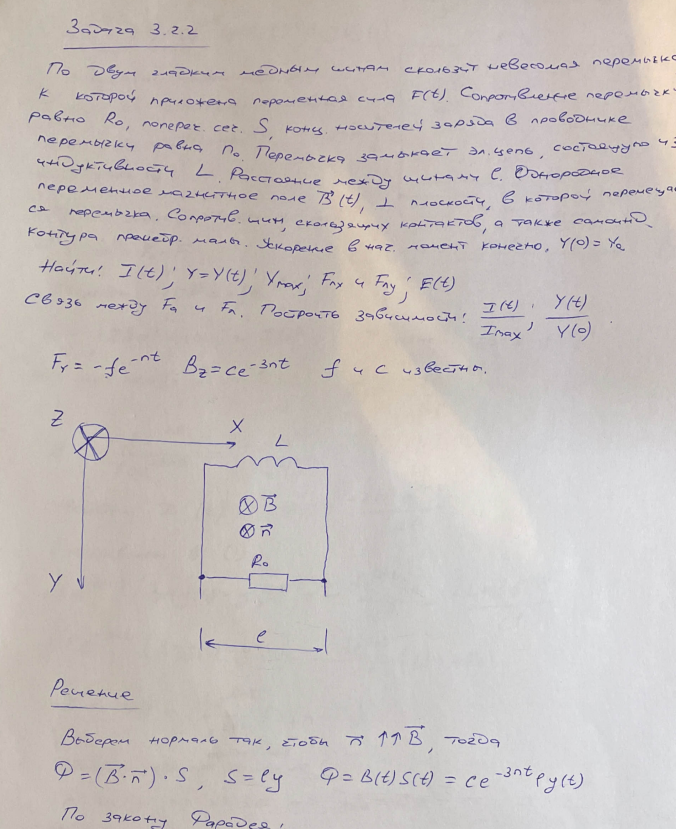 Задача 3.2.2
По двум гладким медным шинам скользит невесомая перемычка
к которой приложена переменная сила F(t). Сопротивление перемычки
равно R₀, попереч. сеч. S, конц. носителей заряда в проводнике
перемычки равна n₀. Перемычка замыкает эл.цепь, состоящую из
индуктивности L. Расстояние между шинами ℓ. Однородное
переменное магнитное поле B⃗(t), ⊥ плоскости, в которой перемеща-
ся перемычка. Сопротив. шин, скользящих контактов, а также самоинд.
контура пренебр. малы. Ускорение в нач. момент конечно, Y(0) = Y₀
Найти: I(t); Y=Y(t); Ymax; Fлx и Fлy; E(t)
Связь между Fа и Fл. Построить зависимости: I(t)/Imax; Y(t)/Y(0).
Fy = -fe^-nt Bz = ce^-3nt f и c известны.
Z
X
L
⊗B⃗
⊗n⃗
R₀
Y
ℓ
Решение
Выберем нормаль так, чтобы n⃗ ↑↑ B⃗, тогда
Φ = (B⃗·n⃗)·S, S = ℓy Φ = B(t)S(t) = ce^-3nt ℓy(t)
По закону Фарадея: